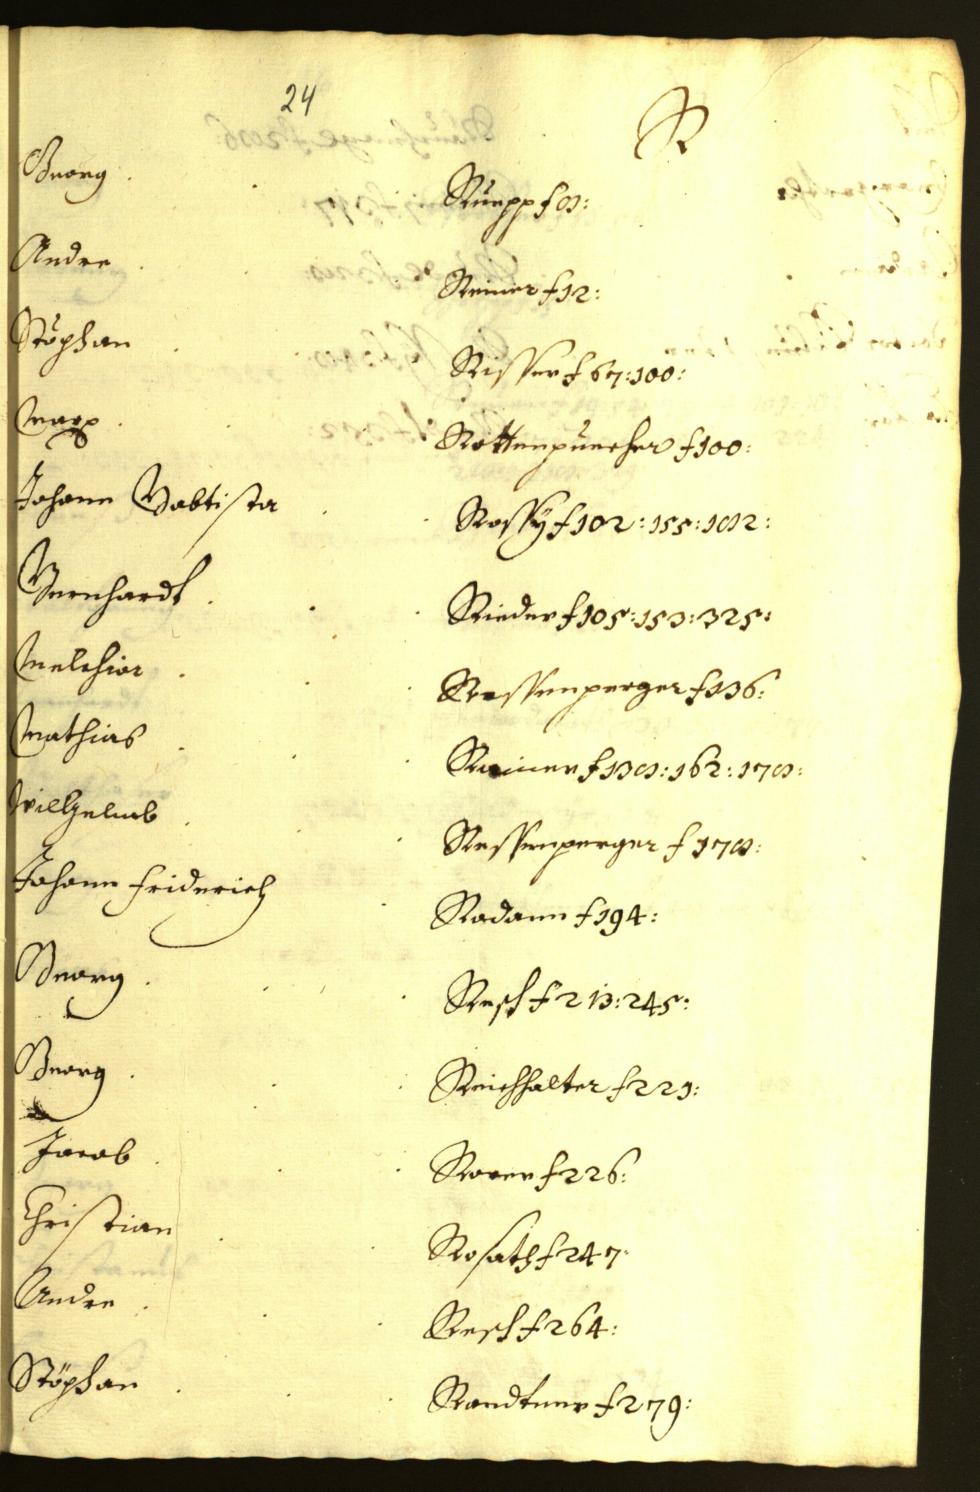 24
R
Georg Ruepp f 8:
Andre Reiner f 12:
Stöphan Risser f 67: 100:
Marx Rottenpuecher f 100:
Johann Babtista Rossÿ f 102: 155: 182:
Bernhardt Rieder f 105: 153: 325:
Melchior Ressenperger f 136:
Mathias Rainer f 138: 162: 178:
Wilhelmb Ressenperger f 178:
Johann Friderich Radann f 194:
Georg Resch f 213: 245:
Georg Reichhalter f 221:
Jacob Rover f 226:
Christian Rosath f 247:
Andre Resch f 264:
Stöphan Randtner f 279: